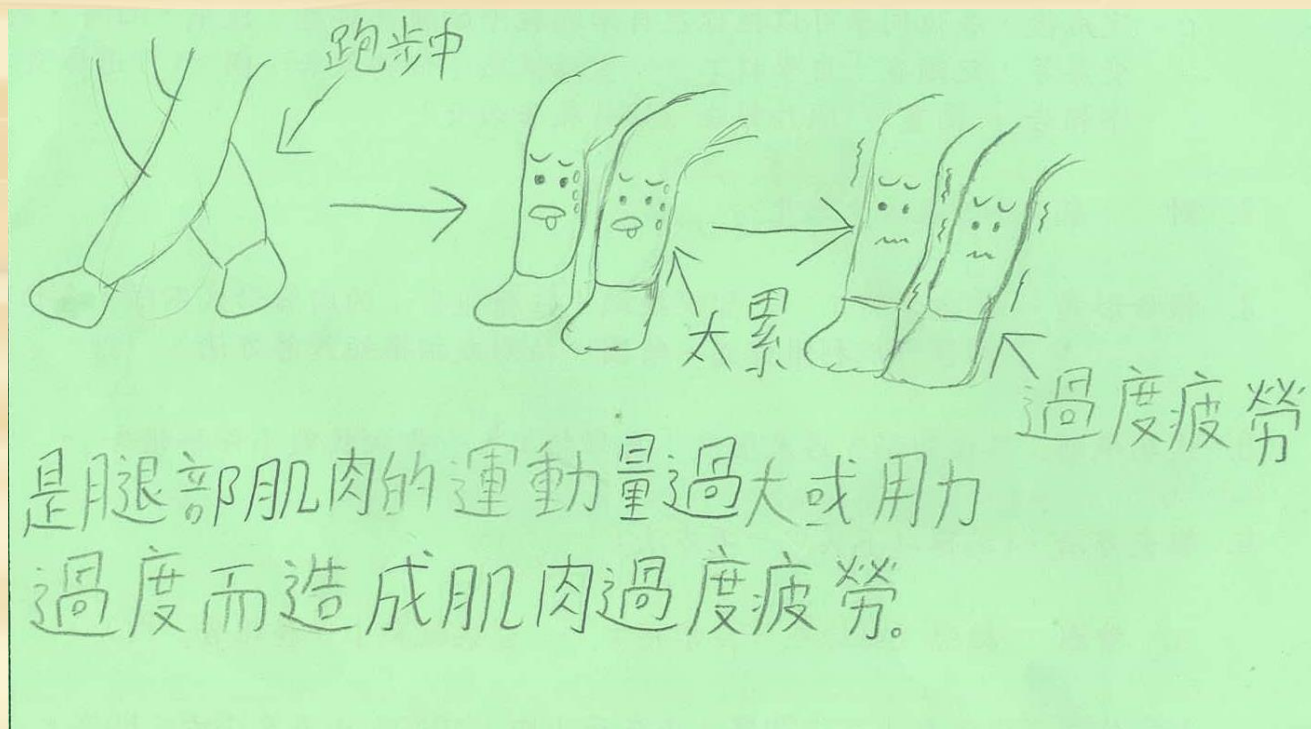 跑步中
太累
過度疲勞
是腿部肌肉的運動量過大或用力
過度而造成肌肉過度疲勞。